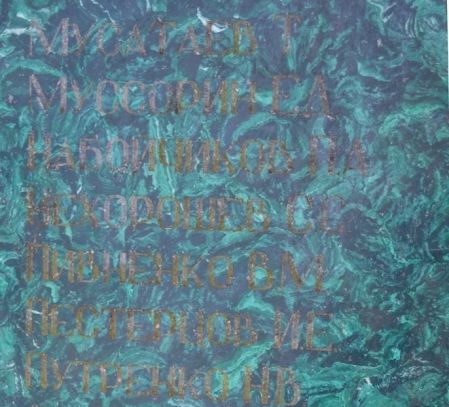 МУСАТАЕВ Т
МУССОРИН Е.А
НАБОЙЧИКОВ П.А
НЕХОРОШЕВ С Е
ПИВНЕНКО В М
ПЕСТЕРЦОВ И Е
ПУТРЕНКО Н В